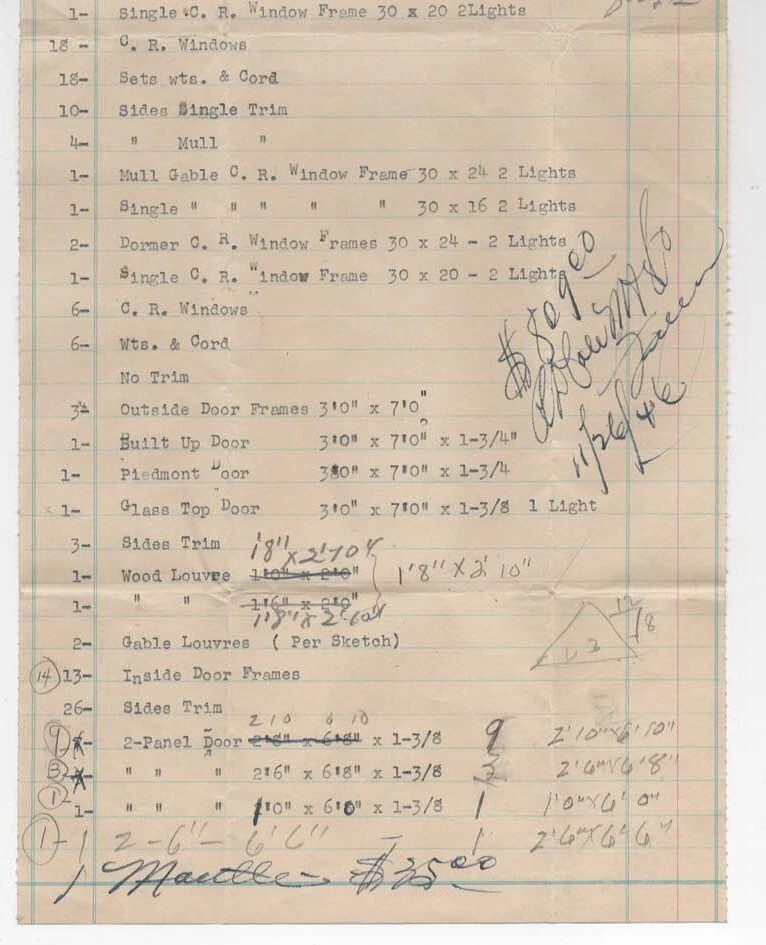 1- Single C. R. Window Frame 30 x 20 2Lights
18 - C. R. Windows
18- Sets wts. & Cord
10- Sides Single Trim
4- " Mull "
1- Mull Gable C. R. Window Frame 30 x 24 2 Lights
1- Single " " " " " 30 x 16 2 Lights
2- Dormer C. R. Window Frames 30 x 24 - 2 Lights
1- Single C. R. Window Frame 30 x 20 - 2 Lights
6- C. R. Windows
6- Wts. & Cord
No Trim
3- Outside Door Frames 3'0" x 7'0"
1- Built Up Door 3'0" x 7'0" x 1-3/4"
1- Piedmont Door 3'0" x 7'0" x 1-3/4
1- Glass Top Door 3'0" x 7'0" x 1-3/8 1 Light
$809 00
11/26/46
3- Sides Trim
1'8" x 2'10"
1- Wood Louvre 1'0" x 2'0" 1'8" x 2' 10"
1- " " 1'6" x 2'0"
1'8" x 2'10"
12
8
2- Gable Louvres ( Per Sketch)
14 13- Inside Door Frames
26- Sides Trim
2 10 6 10
9 2-Panel Door 2'8" x 6'8" x 1-3/8 9 2'10" x 6'10"
3 " " " 2'6" x 6'8" x 1-3/8 3 2'6" x 6'8"
1 1- " " " 1'0" x 6'0" x 1-3/8 1 1'0" x 6' 0"
1 - 1 2-6" - 6'6" - 1 2'6" x 6' 6"
1 Mantle $35 00